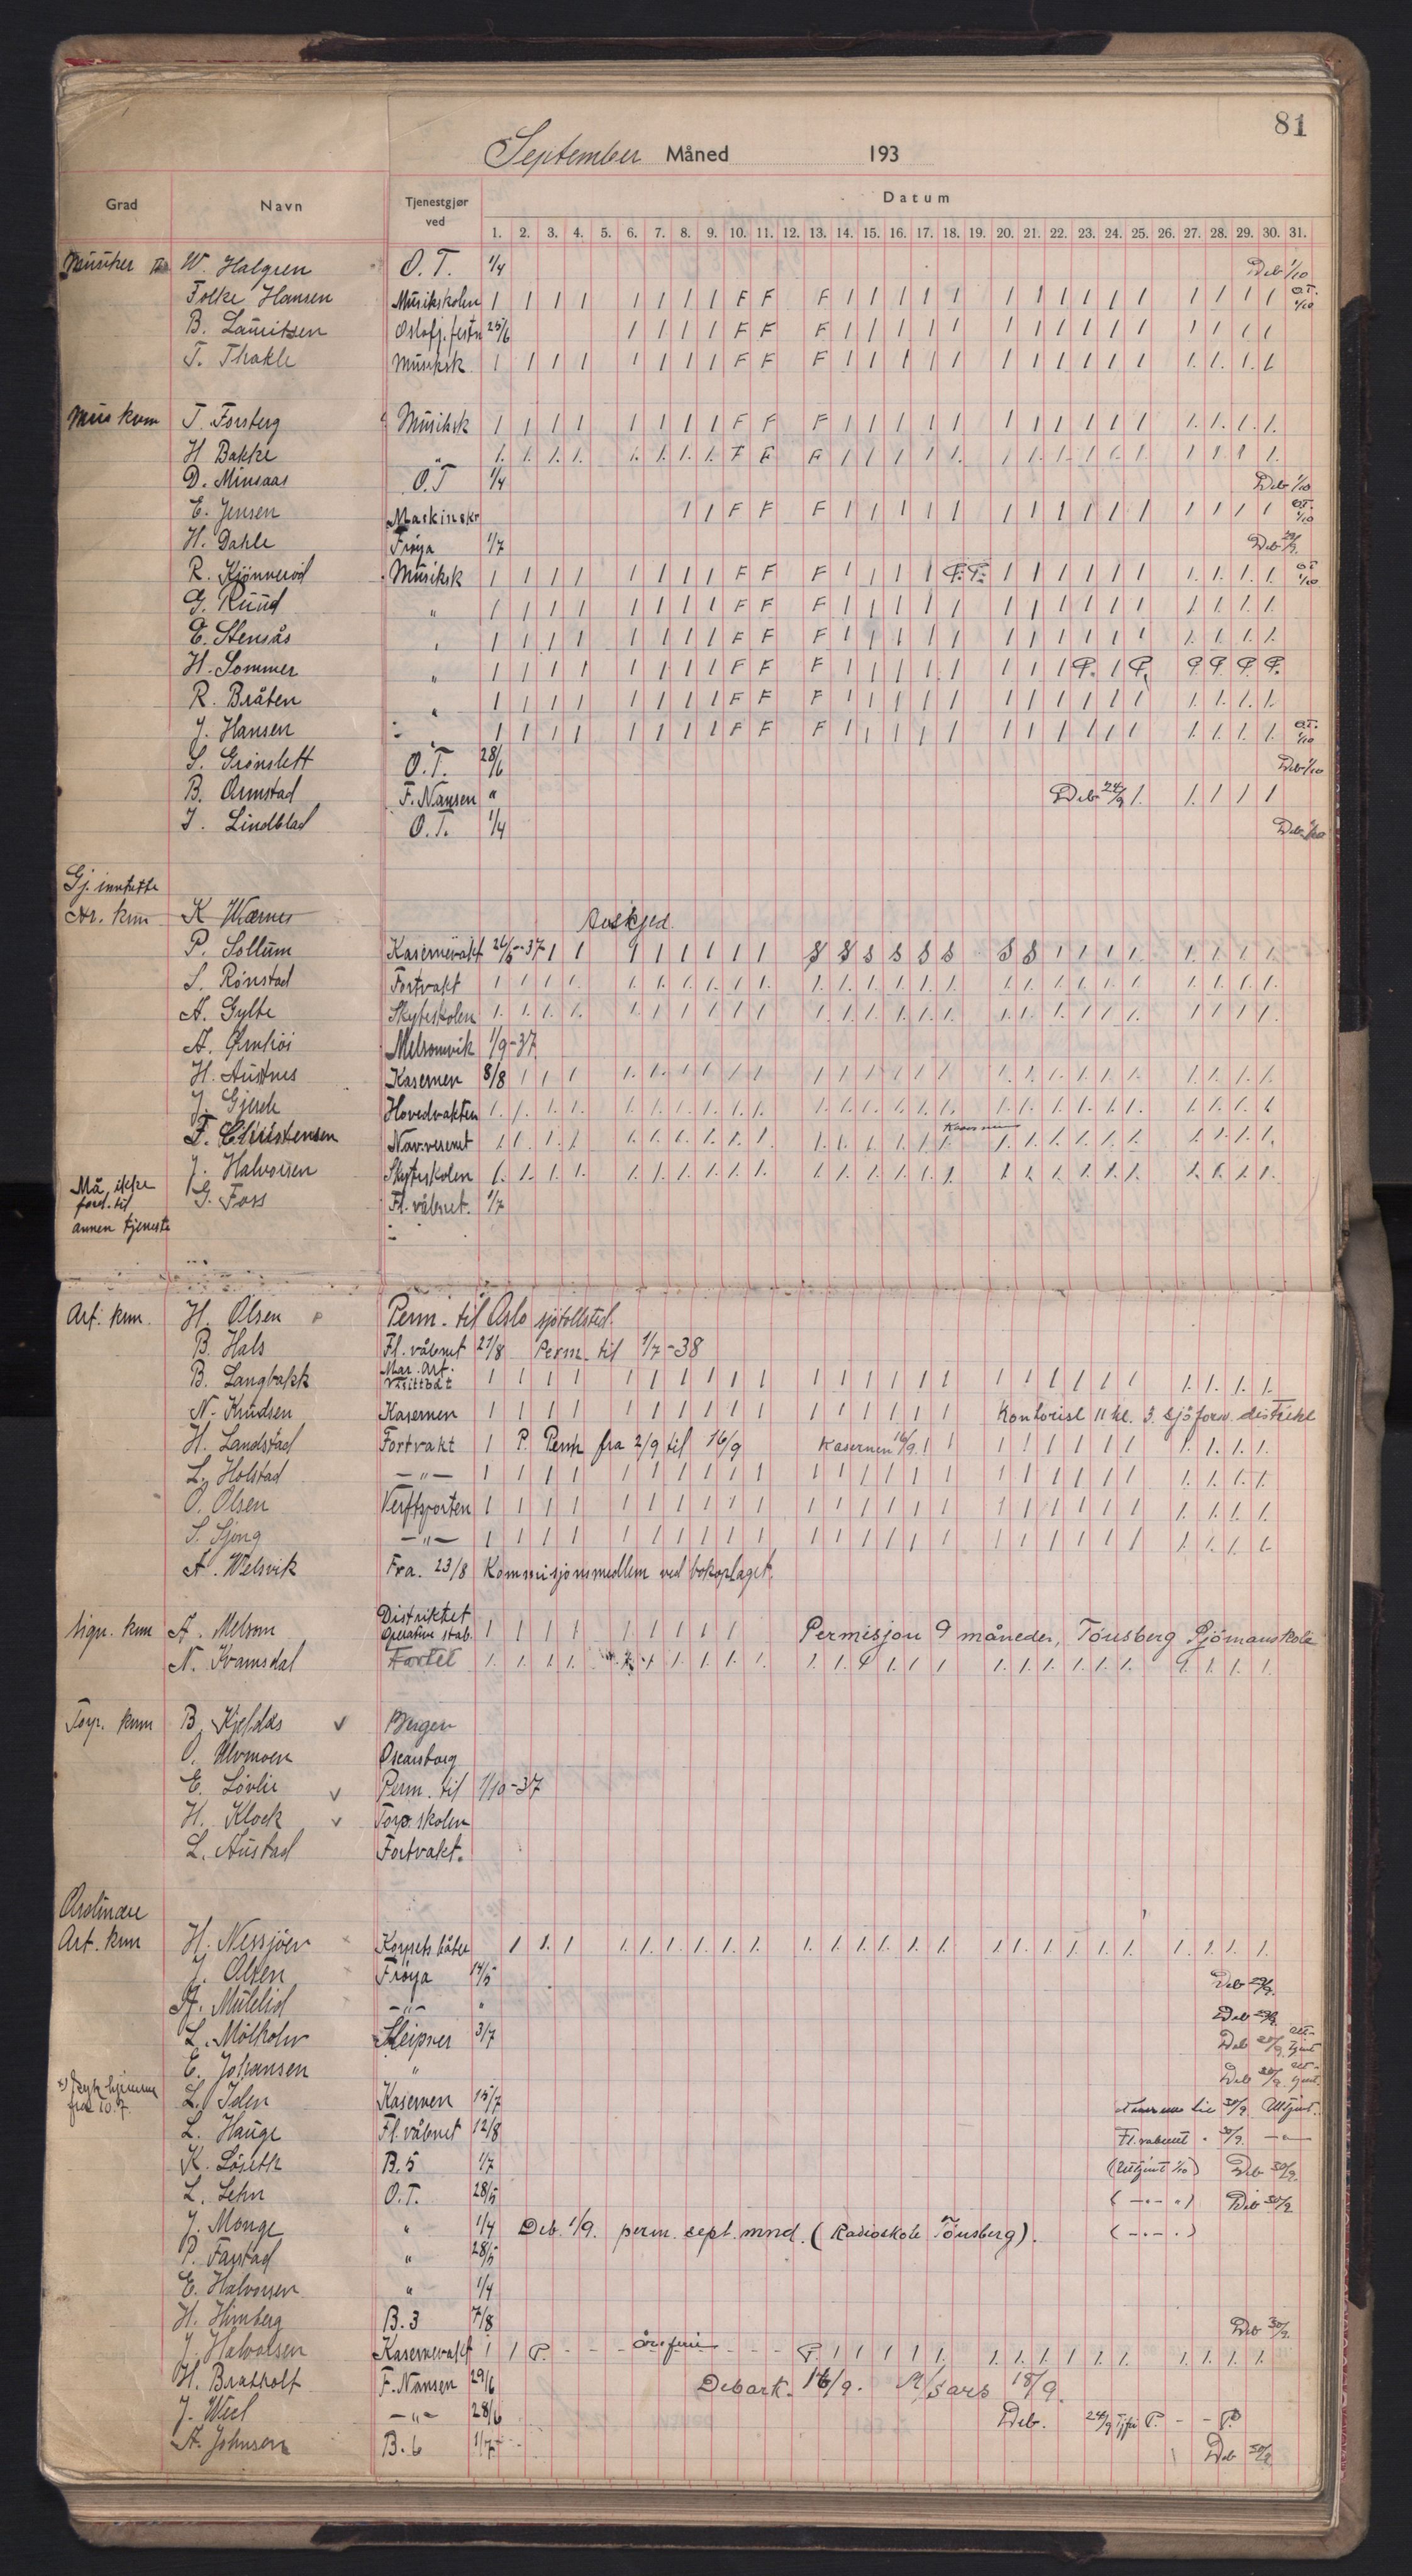 81
September Måned 193
Grad Navn Tjenestgjør ved Datum
1. 2. 3. 4. 5. 6. 7. 8. 9. 10. 11. 12. 13. 14. 15. 16. 17. 18. 19. 20. 21. 22. 23. 24. 25. 26. 27. 28. 29. 30. 31.
Musiker W. Halgren O. T. 1/4 Deb 1/10
Folke Hansen Musikskolen 1 1 1 1 1 1 1 1 F F F 1 1 1 1 1 1 1 1 1 1 1 1 1 1 1 O.T. 1/10
B. Lauritsen Oslofj. festn 25/6 1 1 1 1 F F F 1 1 1 1 1 1 1 1 1 1 1 1 1 1 1
T. Thakle Musiksk 1 1 1 1 1 1 1 1 F F F 1 1 1 1 1 1 1 1 1 1 1 1. 1. 1. 1
Mus kvm T. Forsberg Musiksk 1 1 1 1 1 1 1 1 F F F 1 1 1 1 1 1 1 1 1 1 1 1. 1. 1. 1.
H Bakke " 1. 1. 1. 1. 1. 1. 1. 1. F F F 1 1 1 1 1. 1 1. 1. 1 1. 1 1 1 1 1.
D. Minsaas O.T 1/4 Deb 1/10
E. Jensen Maskinsk 1 1 F F F 1 1 1 1 1 1 1 1 1 1 1 1 1 1 1 O.T. 1/10
H. Dahle Frøya 1/7 Deb 29/9.
R. Kjönneröd Musiksk 1 1 1 1 1 1 1 1 F F F 1 1 1 1 P. P. 1 1 1 1 1 1 1. 1. 1. 1. O.T 1/10
G. Ruud " 1 1 1 1 1 1 1 1 F F F 1 1 1 1 1 1 1 1 1 1 1 1. 1. 1. 1.
E. Stensås " 1 1 1 1 1 1 1 1 F F F 1 1 1 1 1 1 1 1 1 1 1 1. 1. 1. 1.
H. Sommer " 1 1 1 1 1 1 1 1 F F F 1 1 1 1 1 1 1 1 P. 1 P. P P. P. P.
R. Bråten " 1 1 1 1 1 1 1 1 F F F 1 1 1 1 1 1 1 1 1 1 1 1. 1. 1. 1.
J. Hansen " 1 1 1 1 1 1 1 1 F F F 1 1 1 1 1 1 1 1 1 1 1 1. 1. 1. 1. O.T. 1/10
S. Grönslett O.T. 28/6 Deb 1/10
B. Ormstad F. Nansen " Deb 24/9 1. 1. 1 1 1
J. Lindblad O.T. 1/4 Deb 1/10
Gj. innsatte
Ar. kvm K Wærnes Avskjed.
P. Sollum Kasernevakt 26/5-37 1 1 1 1 1 1 1 1 S S S S S S S S 1 1 1 1. 1. 1. 1. 1.
S. Rönstad Fortvakt 1 1 1 1. 1. 1. 1. 1. 1 1. 1. 1. 1. 1. 1. 1. 1. 1. 1. 1. 1. 1. 1. 1. 1. 1.
A. Gylte Skyteskolen 1. 1. 1. 1. 1. 1 1 1 1 1 1. 1. 1. 1. 1. 1. 1. 1. 1. 1 1 1. 1 1 1 1
A. Ørnhöi Melsomvik 1/9-37.
H. Austnes Kasernen 8/8 1 1 1 1. 1. 1 1 1 1 1 1 1 1 1 1 1. 1. 1. 1. 1. 1. 1. 1. 1. 1.
J. Gjerde Hovedvakten 1. 1. 1. 1. 1. 1. 1. 1. 1. 1. 1. 1. 1. 1. 1. 1. 1. 1. 1. 1. 1. 1. 1. 1. 1. 1
F. Christensen Nav.reservet 1. 1 1. 1 1. 1. 1. 1. 1. 1. 1. 1. 1. 1. 1. 1. Kasernen 1. 1. 1. 1. 1. 1. 1. 1. 1. 1.
J. Halvorsen Skyteskolen 1. 1. 1. 1. 1. 1. 1. 1. 1. 1. 1. 1. 1. 1. 1. 1. 1. 1. 1. 1. 1. 1. 1. 1. 1. 1.
Må ikke ford. til annen tjeneste G. Foss Fl. våbnet. 1/7
Art. kvm. H. Olsen Perm. til Oslo sjötollsted.
B. Hals Fl. våbnet 21/8 Perm. til 1/7-38
B. Langbakk Mar. Art. Visittbåt 1 1 1 1 1 1 1 1 1 1 1 1 1 1 1 1 1 1 1 1 1 1 1. 1. 1. 1.
N. Knudsen Kasernen 1 1 1 1 1 1 1 1 1 1 1 1 1 1 1 1 Kontorist 11 kl. 3. sjöforsv. distrikt
H. Landstad Fortvakt 1 P. Perm fra 2/9 til 16/9 Kasernen 16/9. 1 1 1 1 1 1 1 1 1. 1. 1. 1.
L. Holstad —"— 1 1 1 1 1 1 1 1 1 1 1 1 1 1 1 1 1 1 1 1 1 1 1. 1. 1. 1.
O. Olsen Verftsporten 1 1 1 1 1 1 1 1 1 1 1 1 1 1 1 1 1 1 1 1 1 1 1. 1. 1. 1.
S. Sjong —"— 1 1 1 1 1 1 1 1 1 1 1 1 1 1 1 1 1 1 1 1 1 1 1. 1. 1. 1.
A. Welsvik Fra. 23/8 Kommisjonsmedlem ved bokoplaget.
Sign. kvm A. Melsom Distriktet Operative stab. 1 1 1 1 1 1 1 1 1 Permisjon 9 måneder, Tönsberg Sjömannskole
N. Kvamsdal Fortet 1. 1. 1. 1. 1. 1 1 1. 1. 1. 1. 1. 1 1. 1. 1 1. 1. 1. 1. 1. 1. 1. 1. 1. 1.
Torp. kvm B. Kjeldås v Bergen
O. Ulvmoen Oscarsborg
E. Lövlie v Perm. til 1/10-37
H. Klock v Torp. skolen
L. Austad Fortvakt.
Ordinære
Art. kvm H. Nessjöen Korpsets båter 1 1. 1 1. 1. 1. 1. 1. 1. 1. 1. 1. 1. 1. 1. 1. 1. 1. 1. 1. 1. 1. 1. 1. 1.
J. Olsen Fröya 14/5 Deb 29/9.
A. Mulelid —"— " Deb 29/9.
L. Mölholm Sleipner 3/7 Deb 28/9 Utt- tjent
E. Johansen " Deb 28/9 Utt- tjent.
x) Syk hjemme fra 10.7. L. Iden Kasernen 15/7 Kasernen til 30/9 Uttjent.
L. Hauge Fl. våbnet 12/8 Fl. våbnet " 30/9. —"—
K. Löseth B.5 1/7 (Uttjent 1/10) Deb 30/9.
L. Lehn O.T. 28/5 (—"— ") Deb 30/9
J. Monge " 1/4 Deb. 1/9. perm. sept. mnd. (Radioskole Tönsberg). (—"— ")
P. Farstad " 28/5
E. Halvorsen " 1/4
H. Himberg B.3 7/8 Deb 30/9.
J. Halvorsen Kasernevakt 1 1 P. - - - årsferie - - - P. 1 1 1 1 1. 1. 1. 1. 1 1. 1. 1. 1. 1. 1.
H. Bratholt F. Nansen 29/6 Debark. 16/9. M/Sars 18/9.
J. Weel —"— 28/6 Deb. 24/9 Tjfri P. - - P.
A. Johnsen B.6 1/7 Deb 30/9